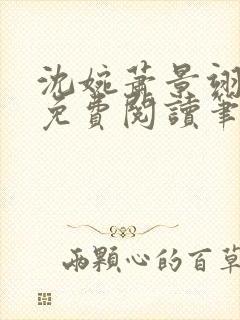 沈婉蕭景翊
免費閱讀筆
兩顆心的百草